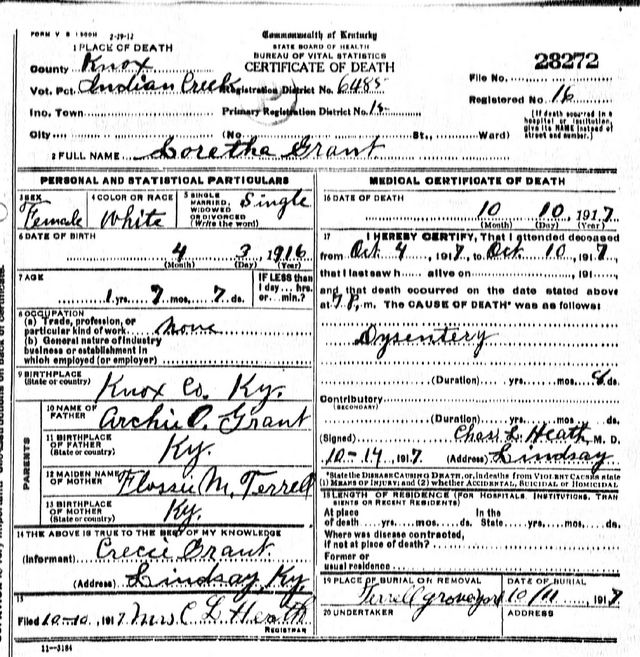 FORM V S 1500H 2-19-12
Commonwealth of Kentucky
STATE BOARD OF HEALTH
BUREAU OF VITAL STATISTICS
CERTIFICATE OF DEATH
28272
1 PLACE OF DEATH
County Knox
Vot. Pct. Indian Creek Registration District No. 6485
File No.
Registered No. 16
Ino. Town Primary Registration District No. 15
City (No. St., Ward)
[If death occurred in a hospital or institution, give its NAME instead of street and number.]
2 FULL NAME Loretha Grant
PERSONAL AND STATISTICAL PARTICULARS
3 SEX Female
4 COLOR OR RACE White
5 SINGLE, MARRIED, WIDOWED OR DIVORCED (Write the word) Single
6 DATE OF BIRTH
4 3, 1916
(Month) (Day) (Year)
7 AGE
1 yrs. 7 mos. 7 ds.
IF LESS than 1 day... hrs. or... min.?
8 OCCUPATION
(a) Trade, profession, or particular kind of work none
(b) General nature of industry business or establishment in which employed (or employer)
9 BIRTHPLACE
(State or country) Knox Co. Ky.
PARENTS
10 NAME OF FATHER Archie O. Grant
11 BIRTHPLACE OF FATHER (State or country) Ky.
12 MAIDEN NAME OF MOTHER Flossie M. Terrell
13 BIRTHPLACE OF MOTHER (State or country) Ky.
14 THE ABOVE IS TRUE TO THE BEST OF MY KNOWLEDGE
(Informant) Grant
(Address) Lindsay, Ky.
15
Filed 10-10, 1917 Mrs C L Heath
REGISTRAR
11—3184
MEDICAL CERTIFICATE OF DEATH
16 DATE OF DEATH
10 10, 1917
(Month) (Day) (Year)
17 I HEREBY CERTIFY, That I attended deceased
from Oct 4, 1917, to Oct. 10, 1917
that I last saw h alive on , 191
and that death occurred on the date stated above
at 7 P, m. The CAUSE OF DEATH* was as follows:
Dysentery
(Duration) yrs. mos. ds.
Contributory
(SECONDARY)
(Duration) yrs. mos. ds.
(Signed) Chas. L. Heath, M. D.
10-14, 1917 (Address) Lindsay
*State the DISEASE CAUSING DEATH, or, in deaths from VIOLENT CAUSES state (1) MEANS OF INJURY; and (2) whether ACCIDENTAL, SUICIDAL or HOMICIDAL
18 LENGTH OF RESIDENCE (FOR HOSPITALS, INSTITUTIONS, TRANSIENTS OR RECENT RESIDENTS)
At place of death yrs. mos. ds. In the State yrs. mos. ds.
Where was disease contracted, if not at place of death?
Former or usual residence
19 PLACE OF BURIAL OR REMOVAL
Terrell graveyard
DATE OF BURIAL
10/11, 1917
20 UNDERTAKER
ADDRESS